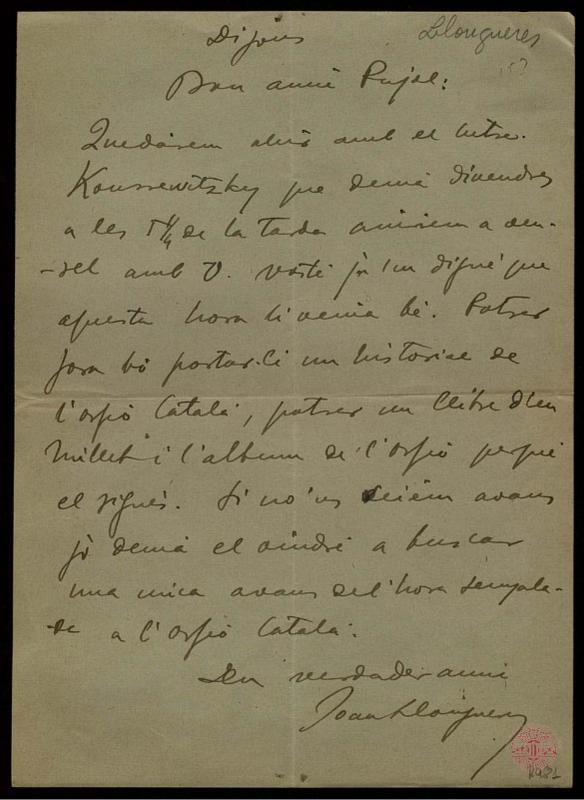 Dijous
Llongueres
Bon amic Pujol:
Quedàrem ahir amb el mtre.
Koussewitzky que demà divendres
a les 5 1/4 de la tarda aniríem a veu-
-rel amb V. vostè ja 'm digué que
aquesta hora li venia bé. Potser
fora bó portar-li un historial de
l'Orfeó Català, potser un llibre d'en
Millet i l'album de l'Orfeó perquè
el vigués. Si no'ns veiém avans
jo demà el vindré a buscar
una mica avans de l'hora senyala-
-da a l'Orfeó Català.
Seu verdader amic
Joan Llongueres